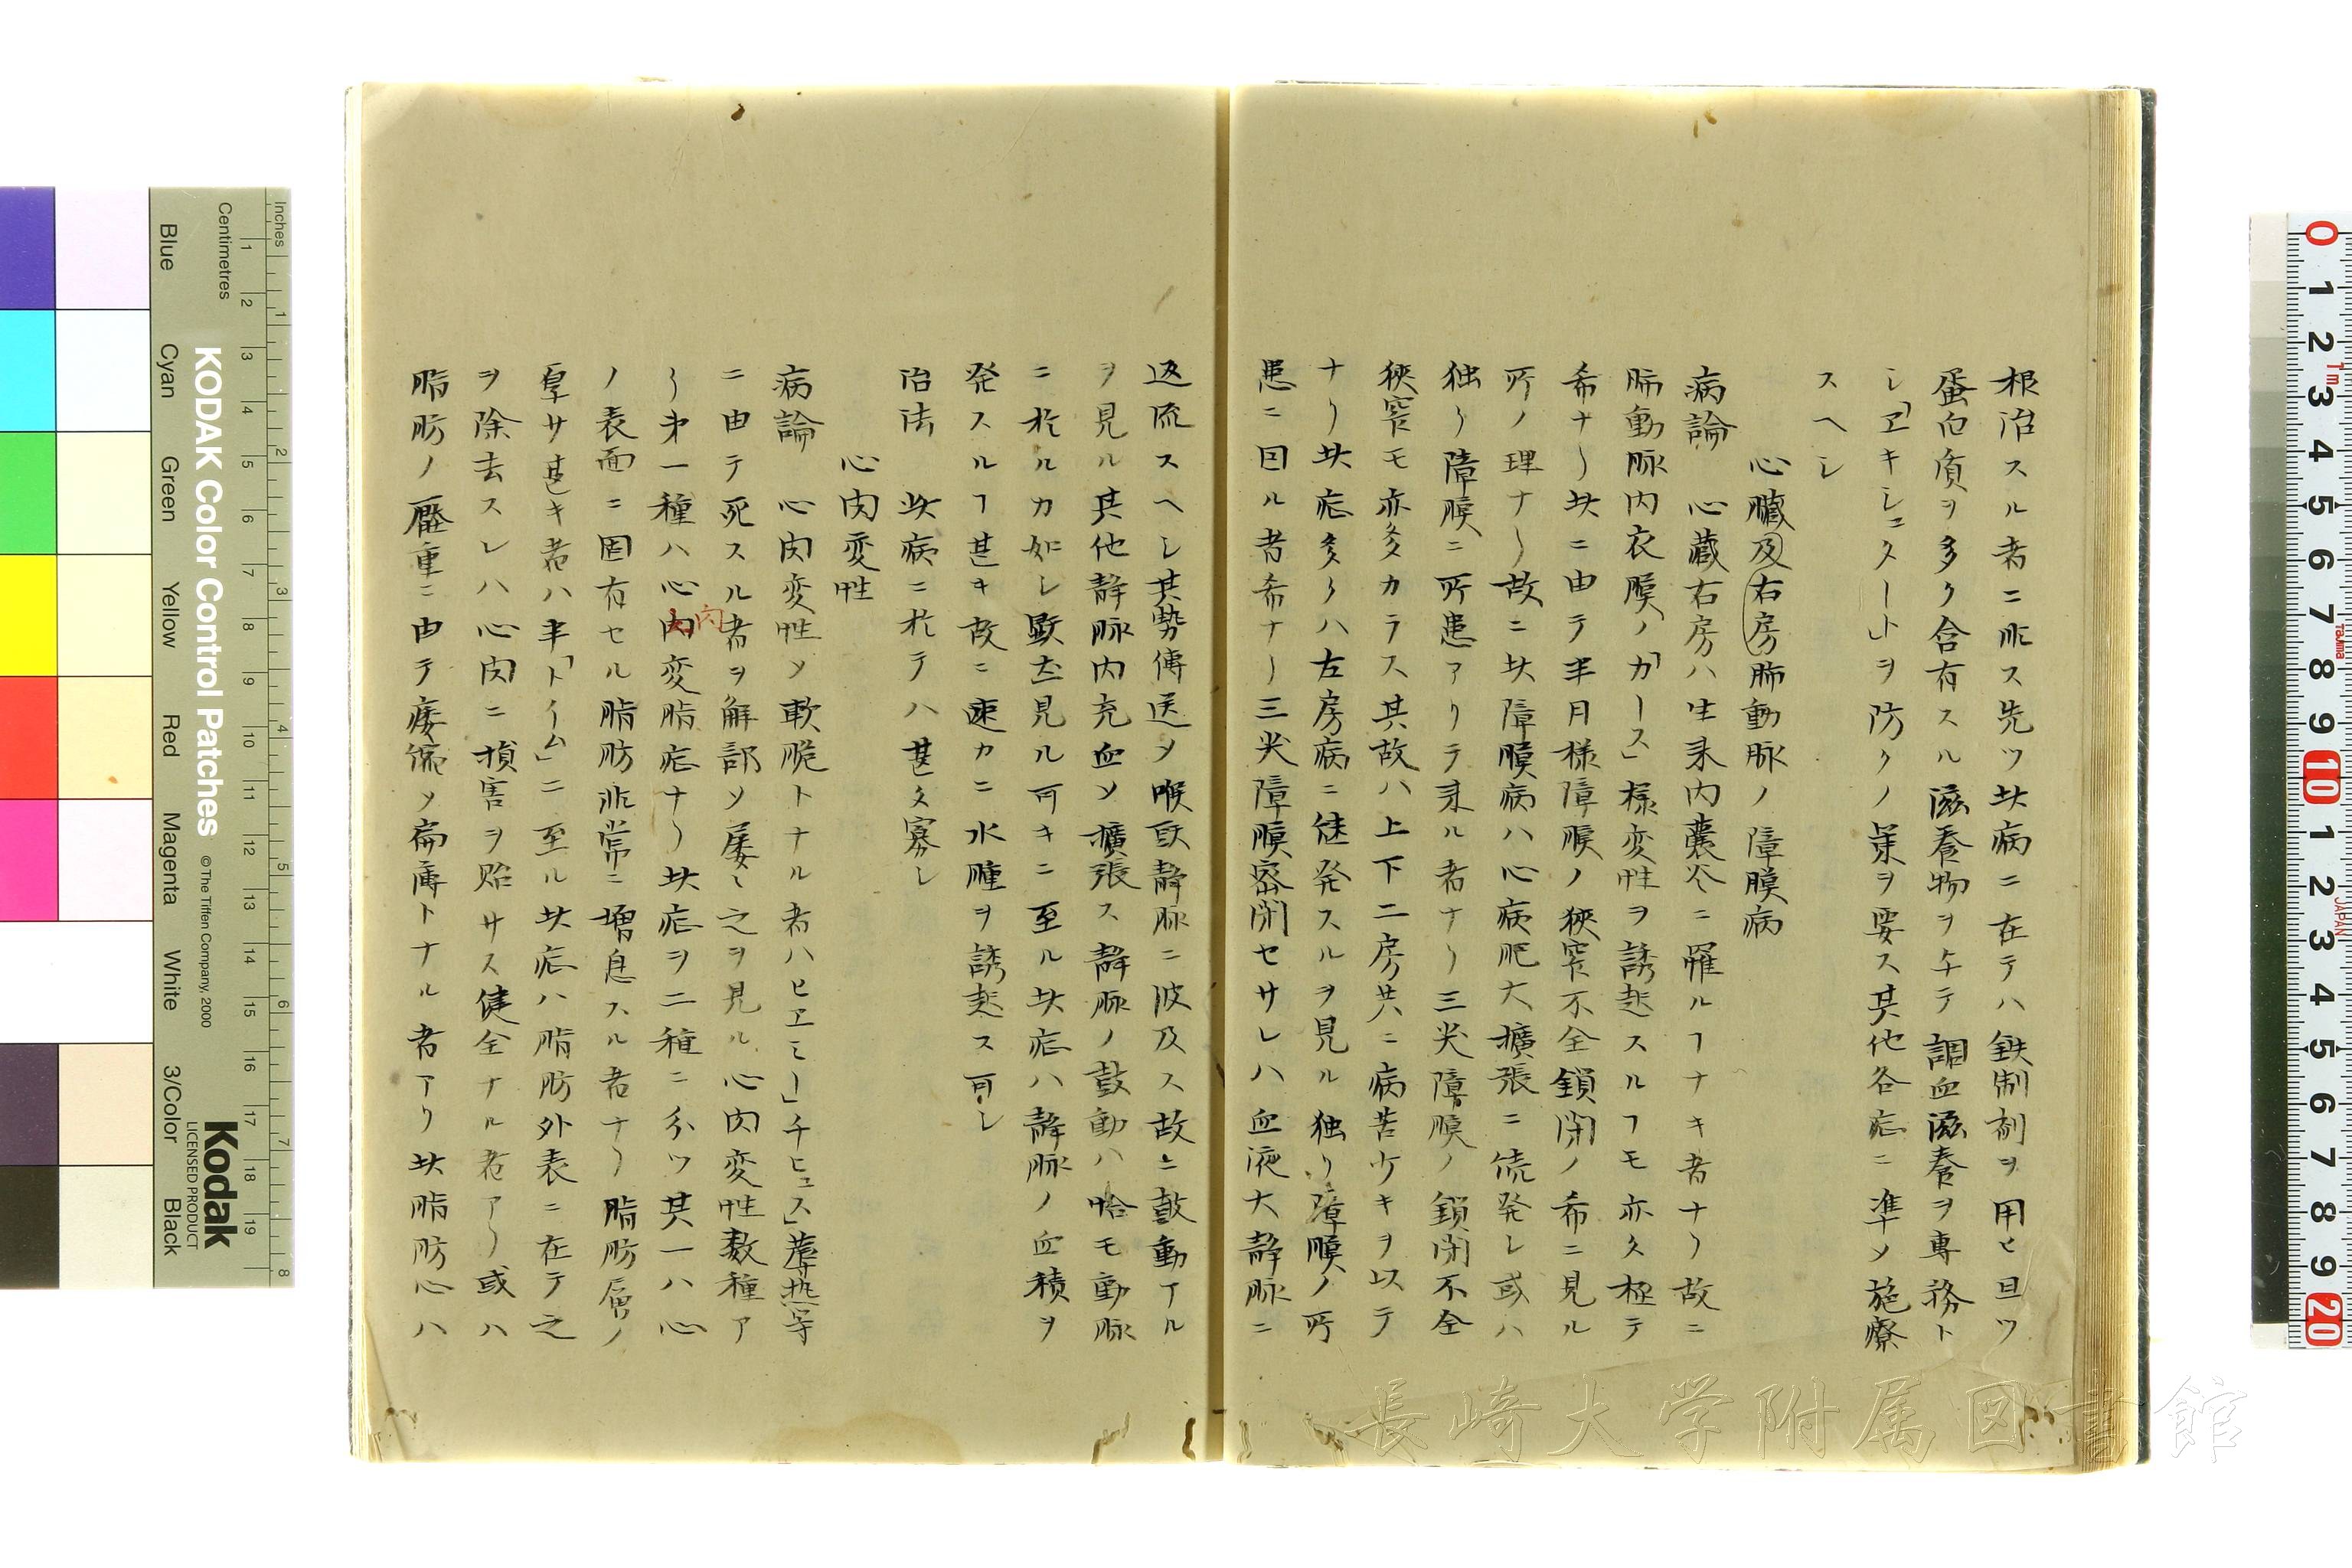 根治スル者ニ非ス先ツ此病ニ在テハ鉄制剤ヲ用ヒ旦ツ
蛋白質ヲ多ク含有スル滋養物ヲ与テ調血滋養ヲ専務ト
シ「ヱキシュクート」ヲ防クノ策ヲ要ス其他各症ニ準メ施療
スヘシ
心臓及右房肺動脉ノ障膜病
病論 心藏右房ハ生来内嚢炎ニ罹ルヿナキ者ナリ故ニ
肺動脉内衣膜ノ「カース」様変性ヲ誘起スルヿモ亦久極テ
希ナリ此ニ由テ半月様障膜ノ狹窄不全鎖閉ノ希ニ見ル
所ノ理ナリ故ニ此障膜病ハ心病肥大擴張ニ続発シ或ハ
独リ障膜ニ所患アリテ来ル者ナリ三尖障膜ノ鎖閉不全
狹窄モ亦多カラス其故ハ上下二房共ニ病苦少キヲ以テ
ナリ此症多クハ左房病ニ継発スルヲ見ル独リ障膜ノ所
患ニ因ル者希ナリ三尖障膜密閉セサレハ血液大静脉ニ
返流スヘシ其勢傳送メ喉頭静脉ニ波及ス故ニ鼓動アル
ヲ見ル其他静脉内充血メ擴張ス静脉ノ鼓動ハ恰モ動脉
ニ於ルカ如シ顕然見ル可キニ至ル此症ハ静脉ノ血積ヲ
発スルヿ甚キ故ニ速カニ水腫ヲ誘起ス可シ
治法 此病ニ於テハ甚タ寡シ
心肉変性
病論 心肉変性メ軟脆トナル者ハヒヱミー」チヒュス」蓐熱等
ニ由テ死スル者ヲ解部メ屡〻之ヲ見ル心肉変性数種ア
リ第一種ハ心肉変脂症ナリ此症ヲ二種ニ分ツ其一ハ心
肉
ノ表面ニ固有セル脂肪非常ニ増息スル者ナリ脂肪層ノ
厚サ甚キ者ハ半「ドイム」ニ至ル此症ハ脂肪外表ニ在テ之
ヲ除去スレハ心肉ニ損害ヲ貽サス健全ナル者アリ或ハ
脂肪ノ壓重ニ由テ痿メ扁薄トナル者アリ此脂肪心ハ
KODAK Color Control Patches
© The Tiffen Company, 2000
Kodak
LICENSED PRODUCT
Inches
Centimetres
Blue Cyan Green Yellow Red Magenta White 3/Color Black
長崎大学附属図書館